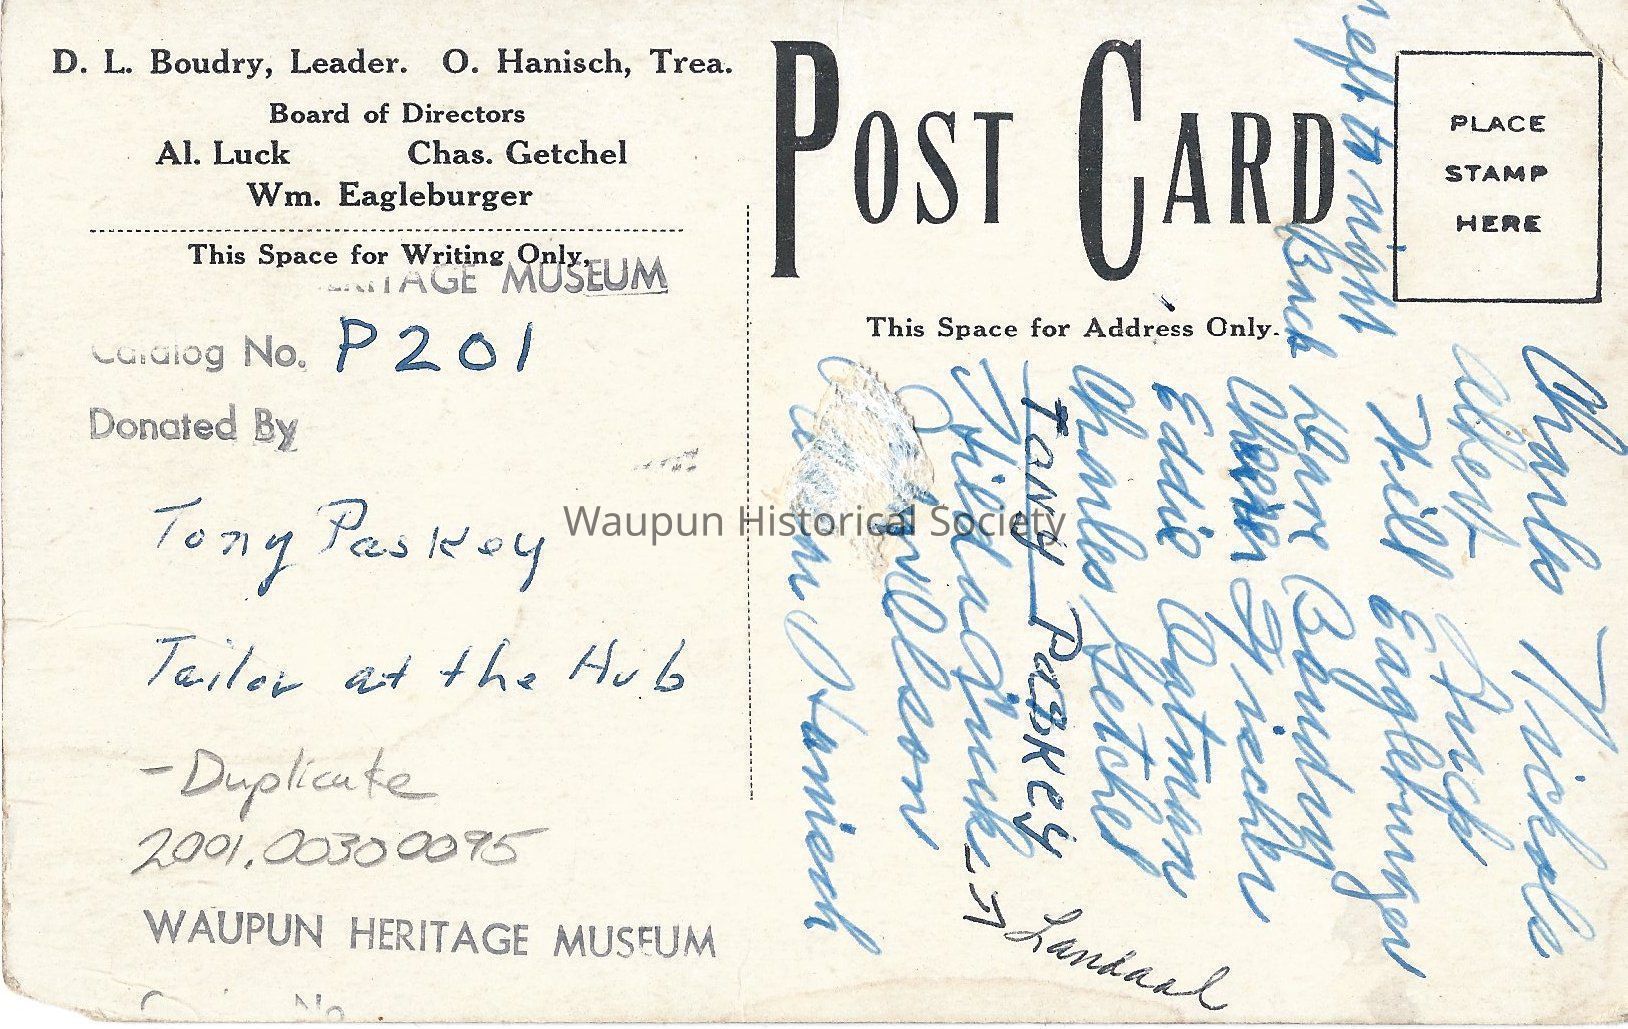 D. L. Boudry, Leader. O. Hanisch, Trea.
Board of Directors
Al. Luck Chas. Getchel
Wm. Eagleburger
This Space for Writing Only.
HERITAGE MUSEUM
Catalog No. P201
Donated By
Tony Paskey
Tailor at the Hub
- Duplicate
2001.00300095
WAUPUN HERITAGE MUSEUM
No
POST CARD
PLACE
STAMP
HERE
This Space for Address Only.
left to right
Charls Nickols
Albert Luck
Will Eagleburger
Back Dave Boudry
Fischer
Eddie Oatman
Charles Getchel
Tony Paskey
Landaal
Willson
Hanisch
Waupun Historical Society